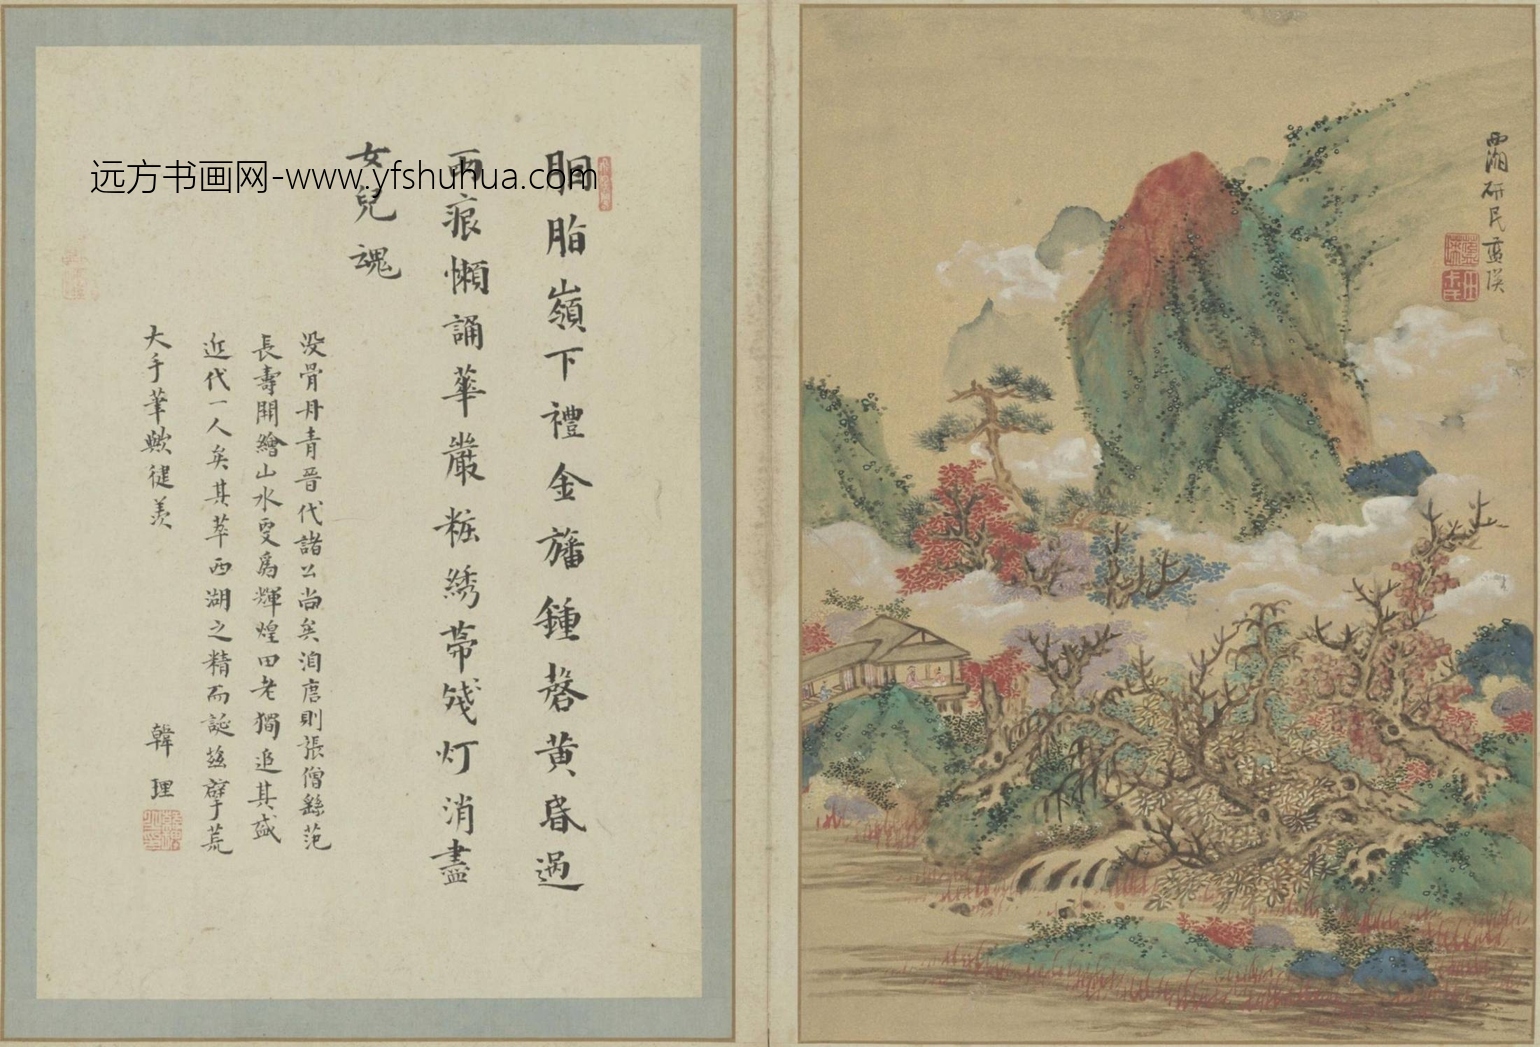 西湖研民藍瑛
胭脂嶺下禮金旛鍾磬黃昏過
雨痕懶誦華嚴粧綉蒂殘灯消盡
女兒魂
没骨丹青晋代諸公尚矣洎唐則張僧繇范
長壽開繪山水更爲輝煌田老獨追其盛
近代一人矣其萃西湖之精而誕茲擘荒
大手筆歟徤羡
韓理
远方书画网-www.yfshuhua.com